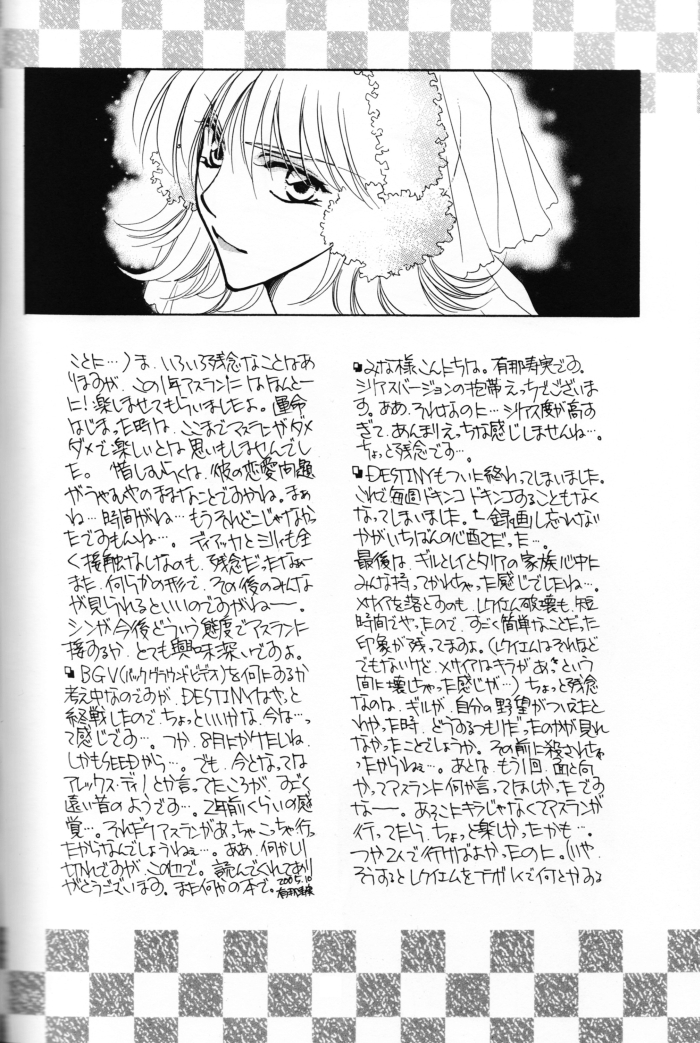 みな様こんにちは。有那寿実です。
シリアスバージョンの抱帯えっちでございま
す。ああ、それなのに…シリアス度が高す
ぎて、あんまりえっちな感じしませんね…。
ちょっと残念です…。
DESTINYもついに終わってしまいました。
これで毎週ドキンコドキンコすることもなく
なってしまいました。←録画し忘れない
かがいちばんの心配でだった…。
最後は、ギルとレイとタリアの家族心中に
みんな持ってかれちゃった感じでしたね…。
メサイアを落とすのも、レクイエム破壊も、短
時間でやったので、すごく簡単なことだった
印象が残ってますよ。(レクイエムはそれほど
でもないけど、メサイアはキラがあっという
間に壊しちゃった感じが…)ちょっと残念
なのは、ギルが、自分の野望がついえたと
わかった時、どうするつもりだったのかが見れ
なかったことでしょうか。その前に殺されちゃ
ったからねぇ…。あとは、もう1回、面と向
かってアスランに何か言ってほしかったです
なー。あそこにキラじゃなくてアスランが
行ってたら、ちょっと楽しかったかも…。
つか2人で行けばよかったのに。(いや、
そうするとレクイエムをゴチ1人で何とかする
ことに…)ま、いろいろ残念なことはあ
りますが、この1年アスランにはなんとー
に!楽しませてもらいましたよ。運命
はじまった時は、ここまでアスランがダメ
ダメで楽しいとは思いもしませんでし
た。惜しむらくは、彼の恋愛問題
がうやむやのままなことですかね。まぁ
ね…時間がね…もうそれどこじゃなかっ
たですもんね…。ディアッカとミリィも全
く接触なしなのも、残念だったなぁー
また、何らかの形で、その後のみんな
が見られるといいのですがねー。
シンが今後どういう態度でアスランに
接するか、とても興味深いですよ。
BGV(バックグラウンドビデオ)を何にするか
考え中なのですが、DESTINYはやっと
終戦したので、ちょっといいかな、今は…っ
て感じです…。つか、8月にかけたしね、
しかもSEEDから…。でも、今となっては
アレックス・ディノとか言ってたころが、すごく
遠い昔のようです…。2年前くらいの感
覚…。それだけアスランがあっちゃこっちゃ行っ
たからなんでしょうねぇ…。ああ、何かしり
切れですが、この辺で。読んでくれてあり
がとうございます。また何かの本で。2005.10
有那寿実